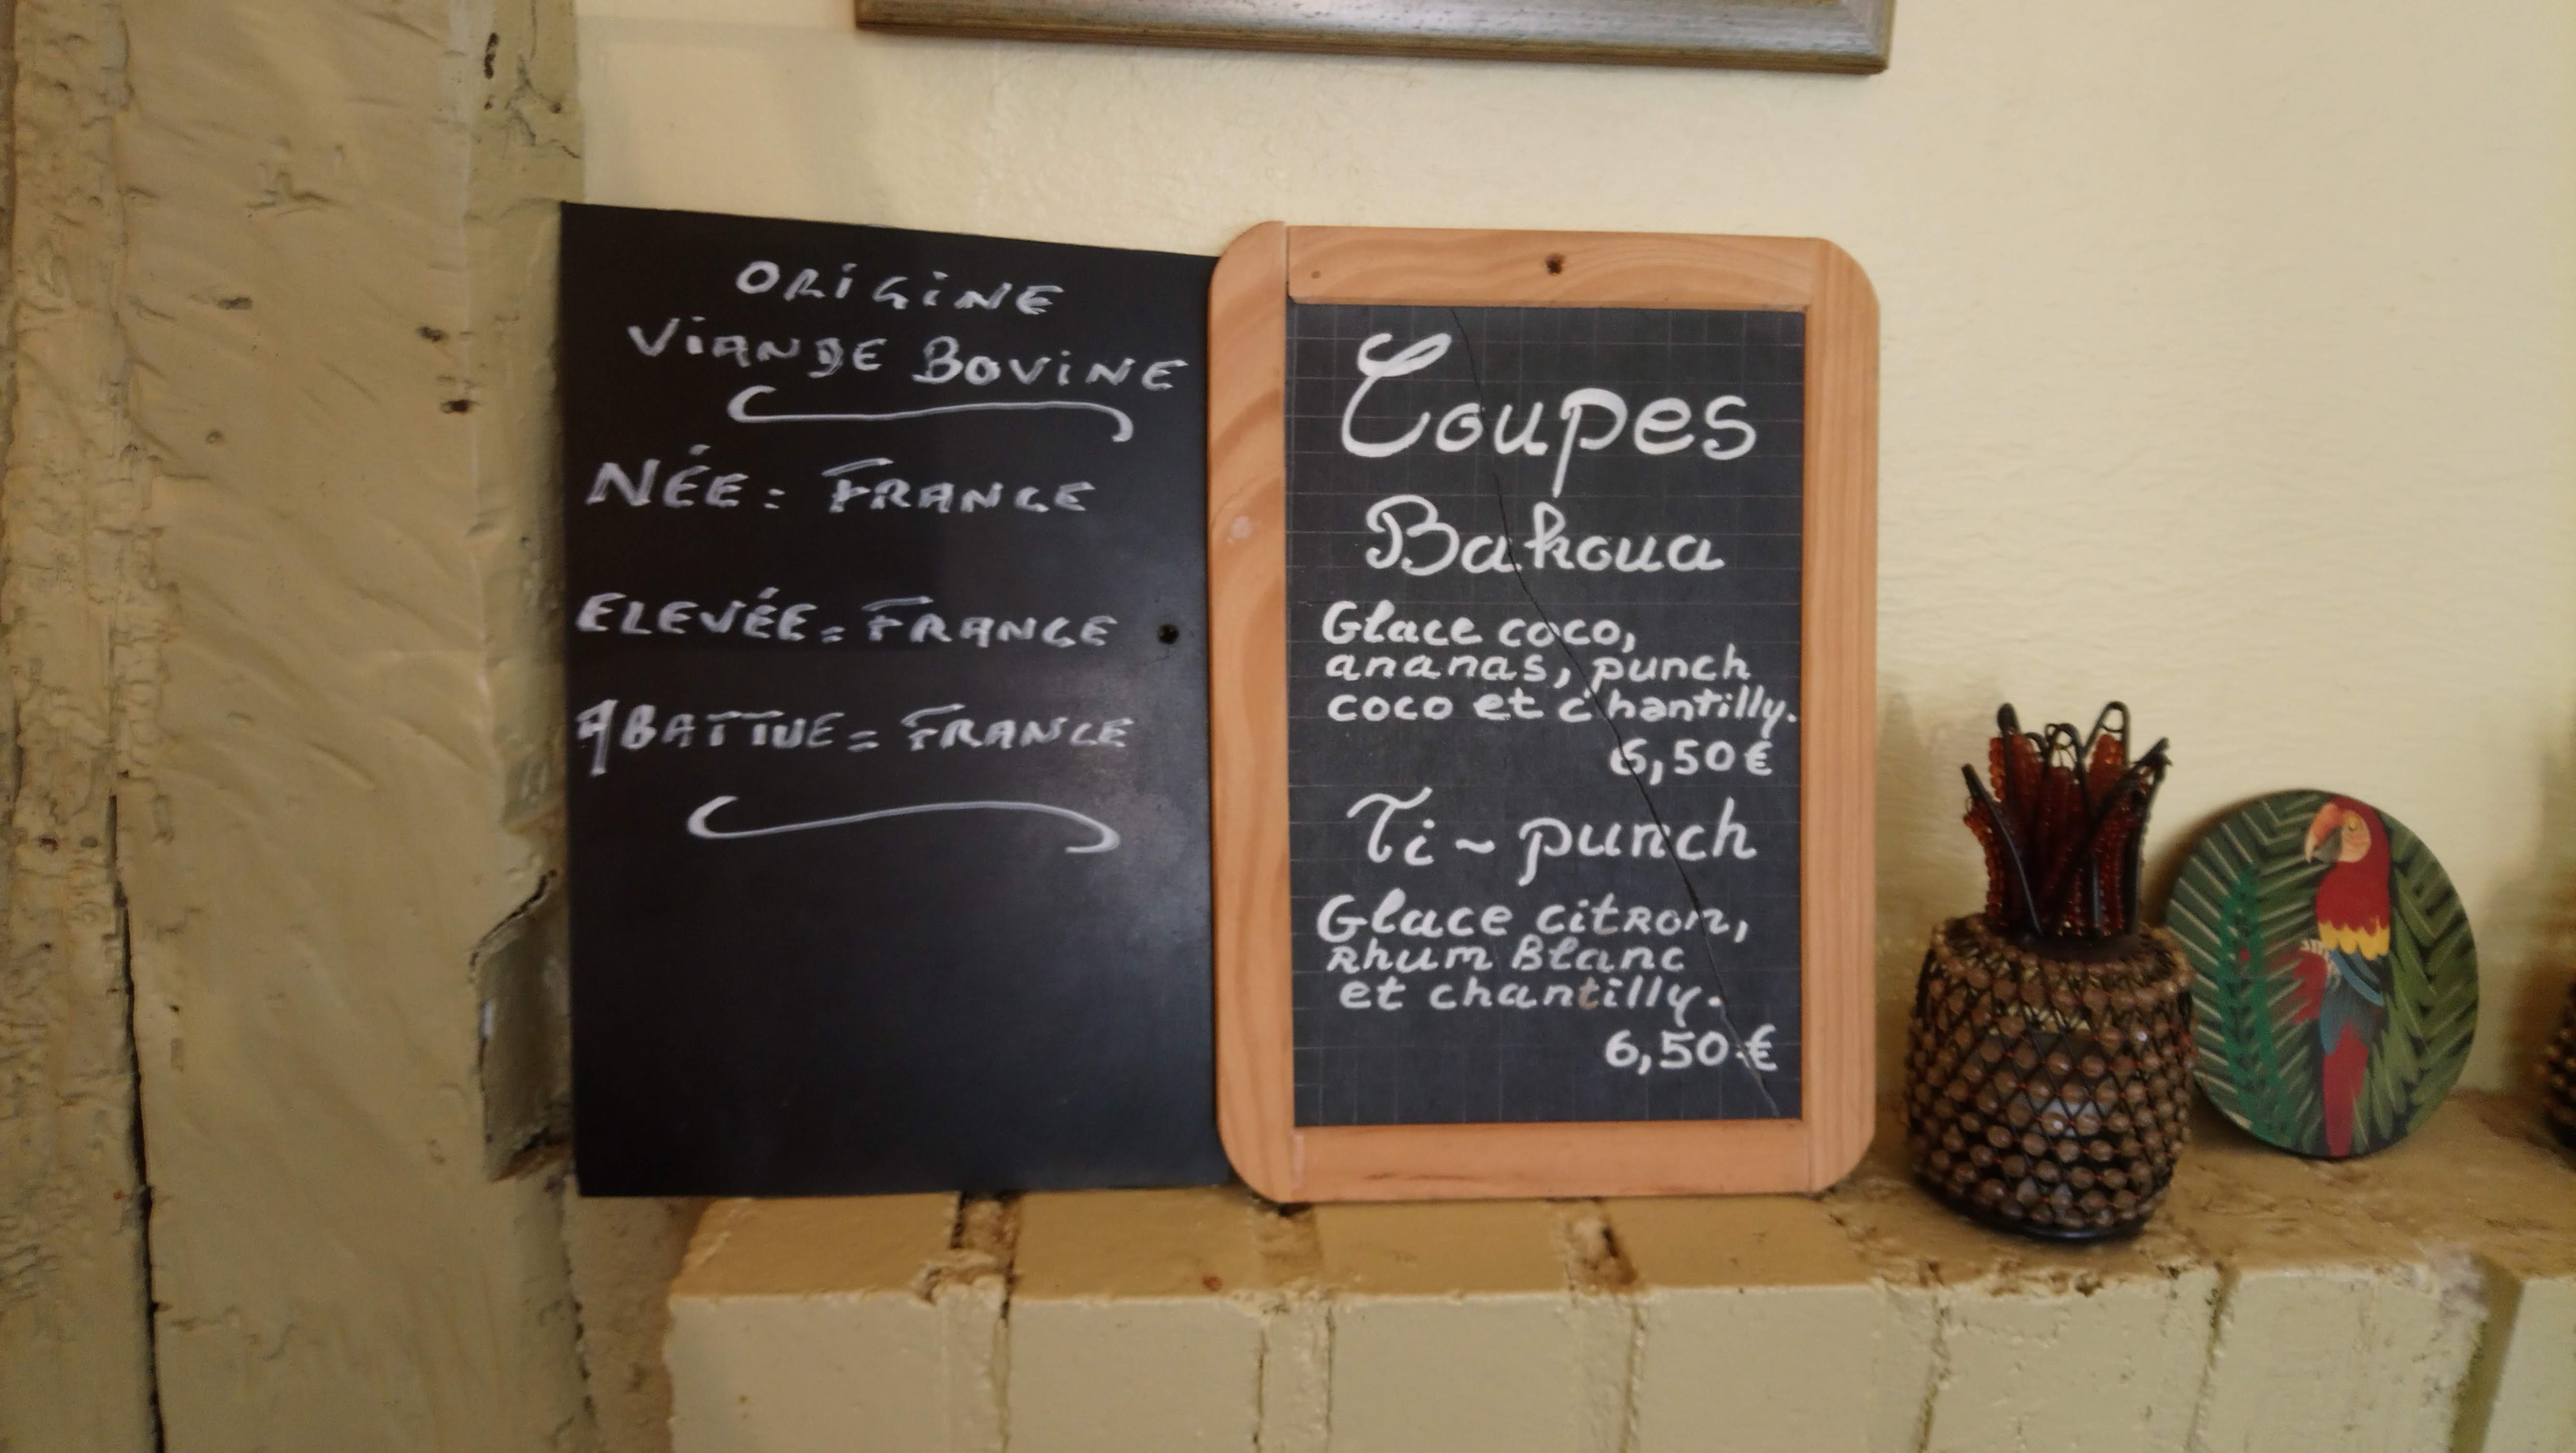 ORIGINE
VIANDE BOVINE
NÉE = FRANCE
ELEVÉE = FRANCE
ABATTUE = FRANCE
Coupes
Bakoua
Glace coco,
ananas, punch
coco et chantilly.
6,50€
Ti-punch
Glace citron,
Rhum Blanc
et chantilly.
6,50€